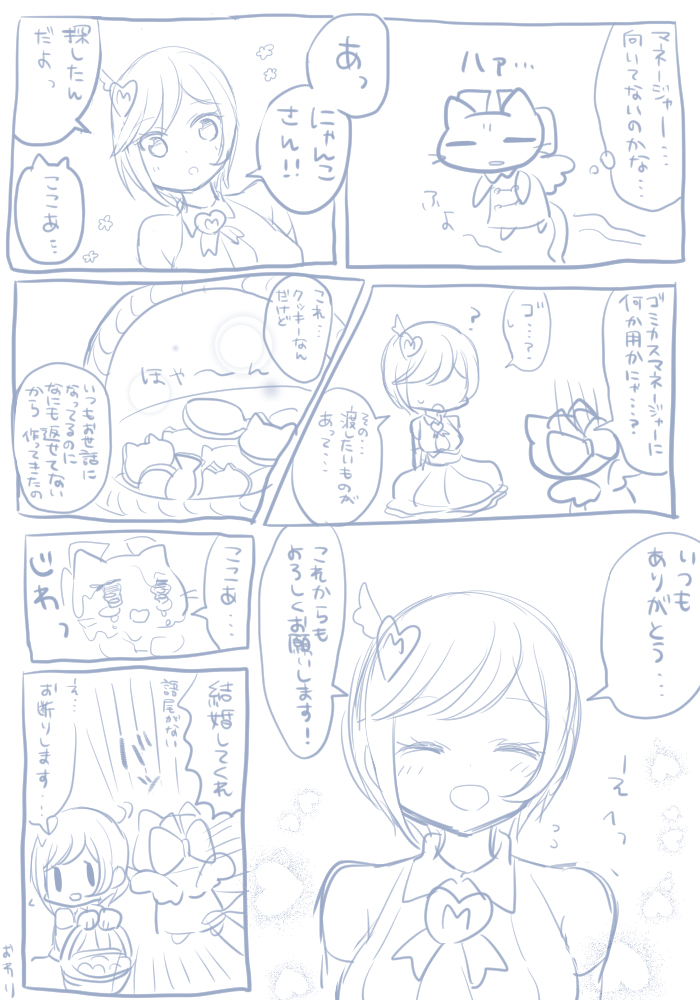 マネージャー…
向いてないのかな…
ハァ…
ふよ
あっ
にゃんこ
さん!!
探したん
だよっ
ここあ…
ゴミカスマネージャーに
何か用かにゃ…?
ゴ…?
?
その…
渡したいものが
あって…
これ…
クッキーなん
だけど
ほや〜ん
いつもお世話に
なってるのに
なにも返せてない
から 作ってきたの
いつも
ありがとう…
これからも
よろしくお願いします!
えへっ
ここあ…
じわっ
結婚してくれ
語尾がない
え…
お断りします…
おわり